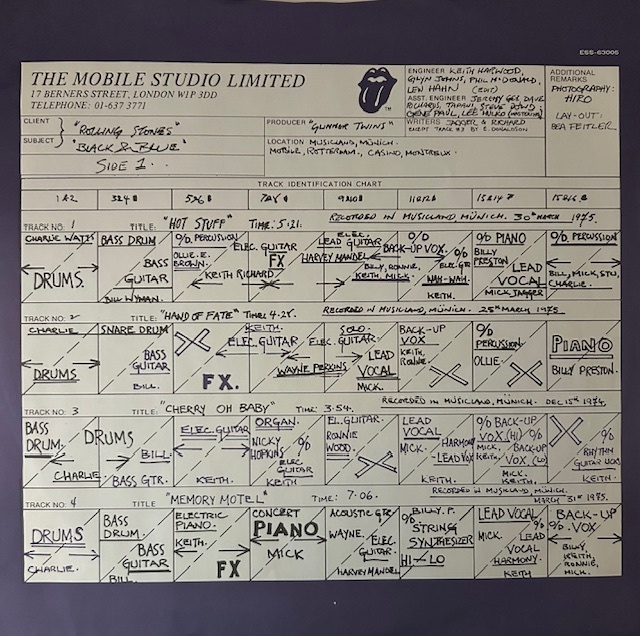 ESS-63006
THE MOBILE STUDIO LIMITED
17 BERNERS STREET, LONDON W1P 3DD
TELEPHONE: 01-637 3771
TM
ENGINEER KEITH HARWOOD,
GLYN JOHNS, PHIL McDONALD,
LEW HAHN (EDIT)
ASST. ENGINEER JEREMY GEE, DAVE
RICHARDS, TAPANI, STEVE DOWD,
GENE PAUL, LEE HULKO (MASTERING)
WRITERS JAGGER & RICHARD
EXCEPT TRACK #3 BY E. DONALDSON
ADDITIONAL
REMARKS
PHOTOGRAPHY:
HIRO
LAY-OUT:
BEA FEITLER
CLIENT "ROLLING STONES"
SUBJECT "BLACK & BLUE"
SIDE 1.
PRODUCER "GLIMMER TWINS"
LOCATION MUSICLAND, MÜNICH.
MOBILE, ROTTERDAM, CASINO, MONTREUX.
TRACK IDENTIFICATION CHART
TRACK NO: 1 TITLE: "HOT STUFF" TIME: 5:21. RECORDED IN MUSICLAND, MÜNICH. 30th MARCH 1975.
CHARLIE WATTS
DRUMS.
BASS DRUM
BASS
GUITAR
BILL WYMAN.
% PERCUSSION
OLLIE. E.
BROWN.
ELEC. GUITAR
FX
KEITH RICHARD
ELEC.
LEAD GUITAR
HARVEY MANDEL
% BACK-UP VOX.
BILLY, RONNIE,
KEITH, MICK
% ELEC. GTR
WAH-WAH.
KEITH.
% PIANO
BILLY
PRESTON
LEAD
VOCAL
MICK JAGGER
%. PERCUSSION
BILL, MICK, STU,
CHARLIE.
TRACK NO: 2 TITLE: "HAND OF FATE" TIME: 4.28. RECORDED IN MUSICLAND, MÜNICH. 25th MARCH 1975
CHARLIE
DRUMS
SNARE DRUM
BASS
GUITAR
BILL.
FX.
KEITH.
ELEC. GUITAR
SOLO.
ELEC. GUITAR.
WAYNE PERKINS
LEAD
VOCAL
MICK.
BACK-UP
VOX
KEITH,
RONNIE
%
PERCUSSION
OLLIE.
PIANO
BILLY PRESTON.
TRACK NO: 3 TITLE: "CHERRY OH BABY" TIME: 3.54. RECORDED IN MUSICLAND, MÜNICH. DEC 15th 1974.
BASS
DRUM.
DRUMS
CHARLIE
BILL.
BASS GTR.
ELEC. GUITAR
KEITH.
ORGAN.
NICKY
HOPKINS
%
ELEC
GUITAR
KEITH
EL. GUITAR.
RONNIE
WOOD.
LEAD
VOCAL
MICK.
HARMONY
LEAD VOX
KEITH.
% BACK-UP
VOX (HI) %
MICK,
KEITH.
BACK-UP
VOX. (LO)
MICK.
KEITH.
%
RHYTHM
GUITAR LICKS
KEITH.
TRACK NO: 4 TITLE "MEMORY MOTEL" TIME: 7.06. RECORDED IN MUSICLAND, MÜNICH.
MARCH 31st 1975.
DRUMS
CHARLIE.
BASS
DRUM.
BASS
GUITAR
BILL
ELECTRIC
PIANO.
KEITH.
FX
CONCERT
PIANO
MICK
ACOUSTIC GTR.
WAYNE.
ELEC.
GUITAR.
HARVEY MANDEL
% BILLY. P.
STRING
SYNTHESIZER
HI-LO
LEAD VOCAL
MICK.
% LEAD
VOCAL
HARMONY.
KEITH
BACK-UP
% VOX.
BILLY,
KEITH,
RONNIE,
MICK.